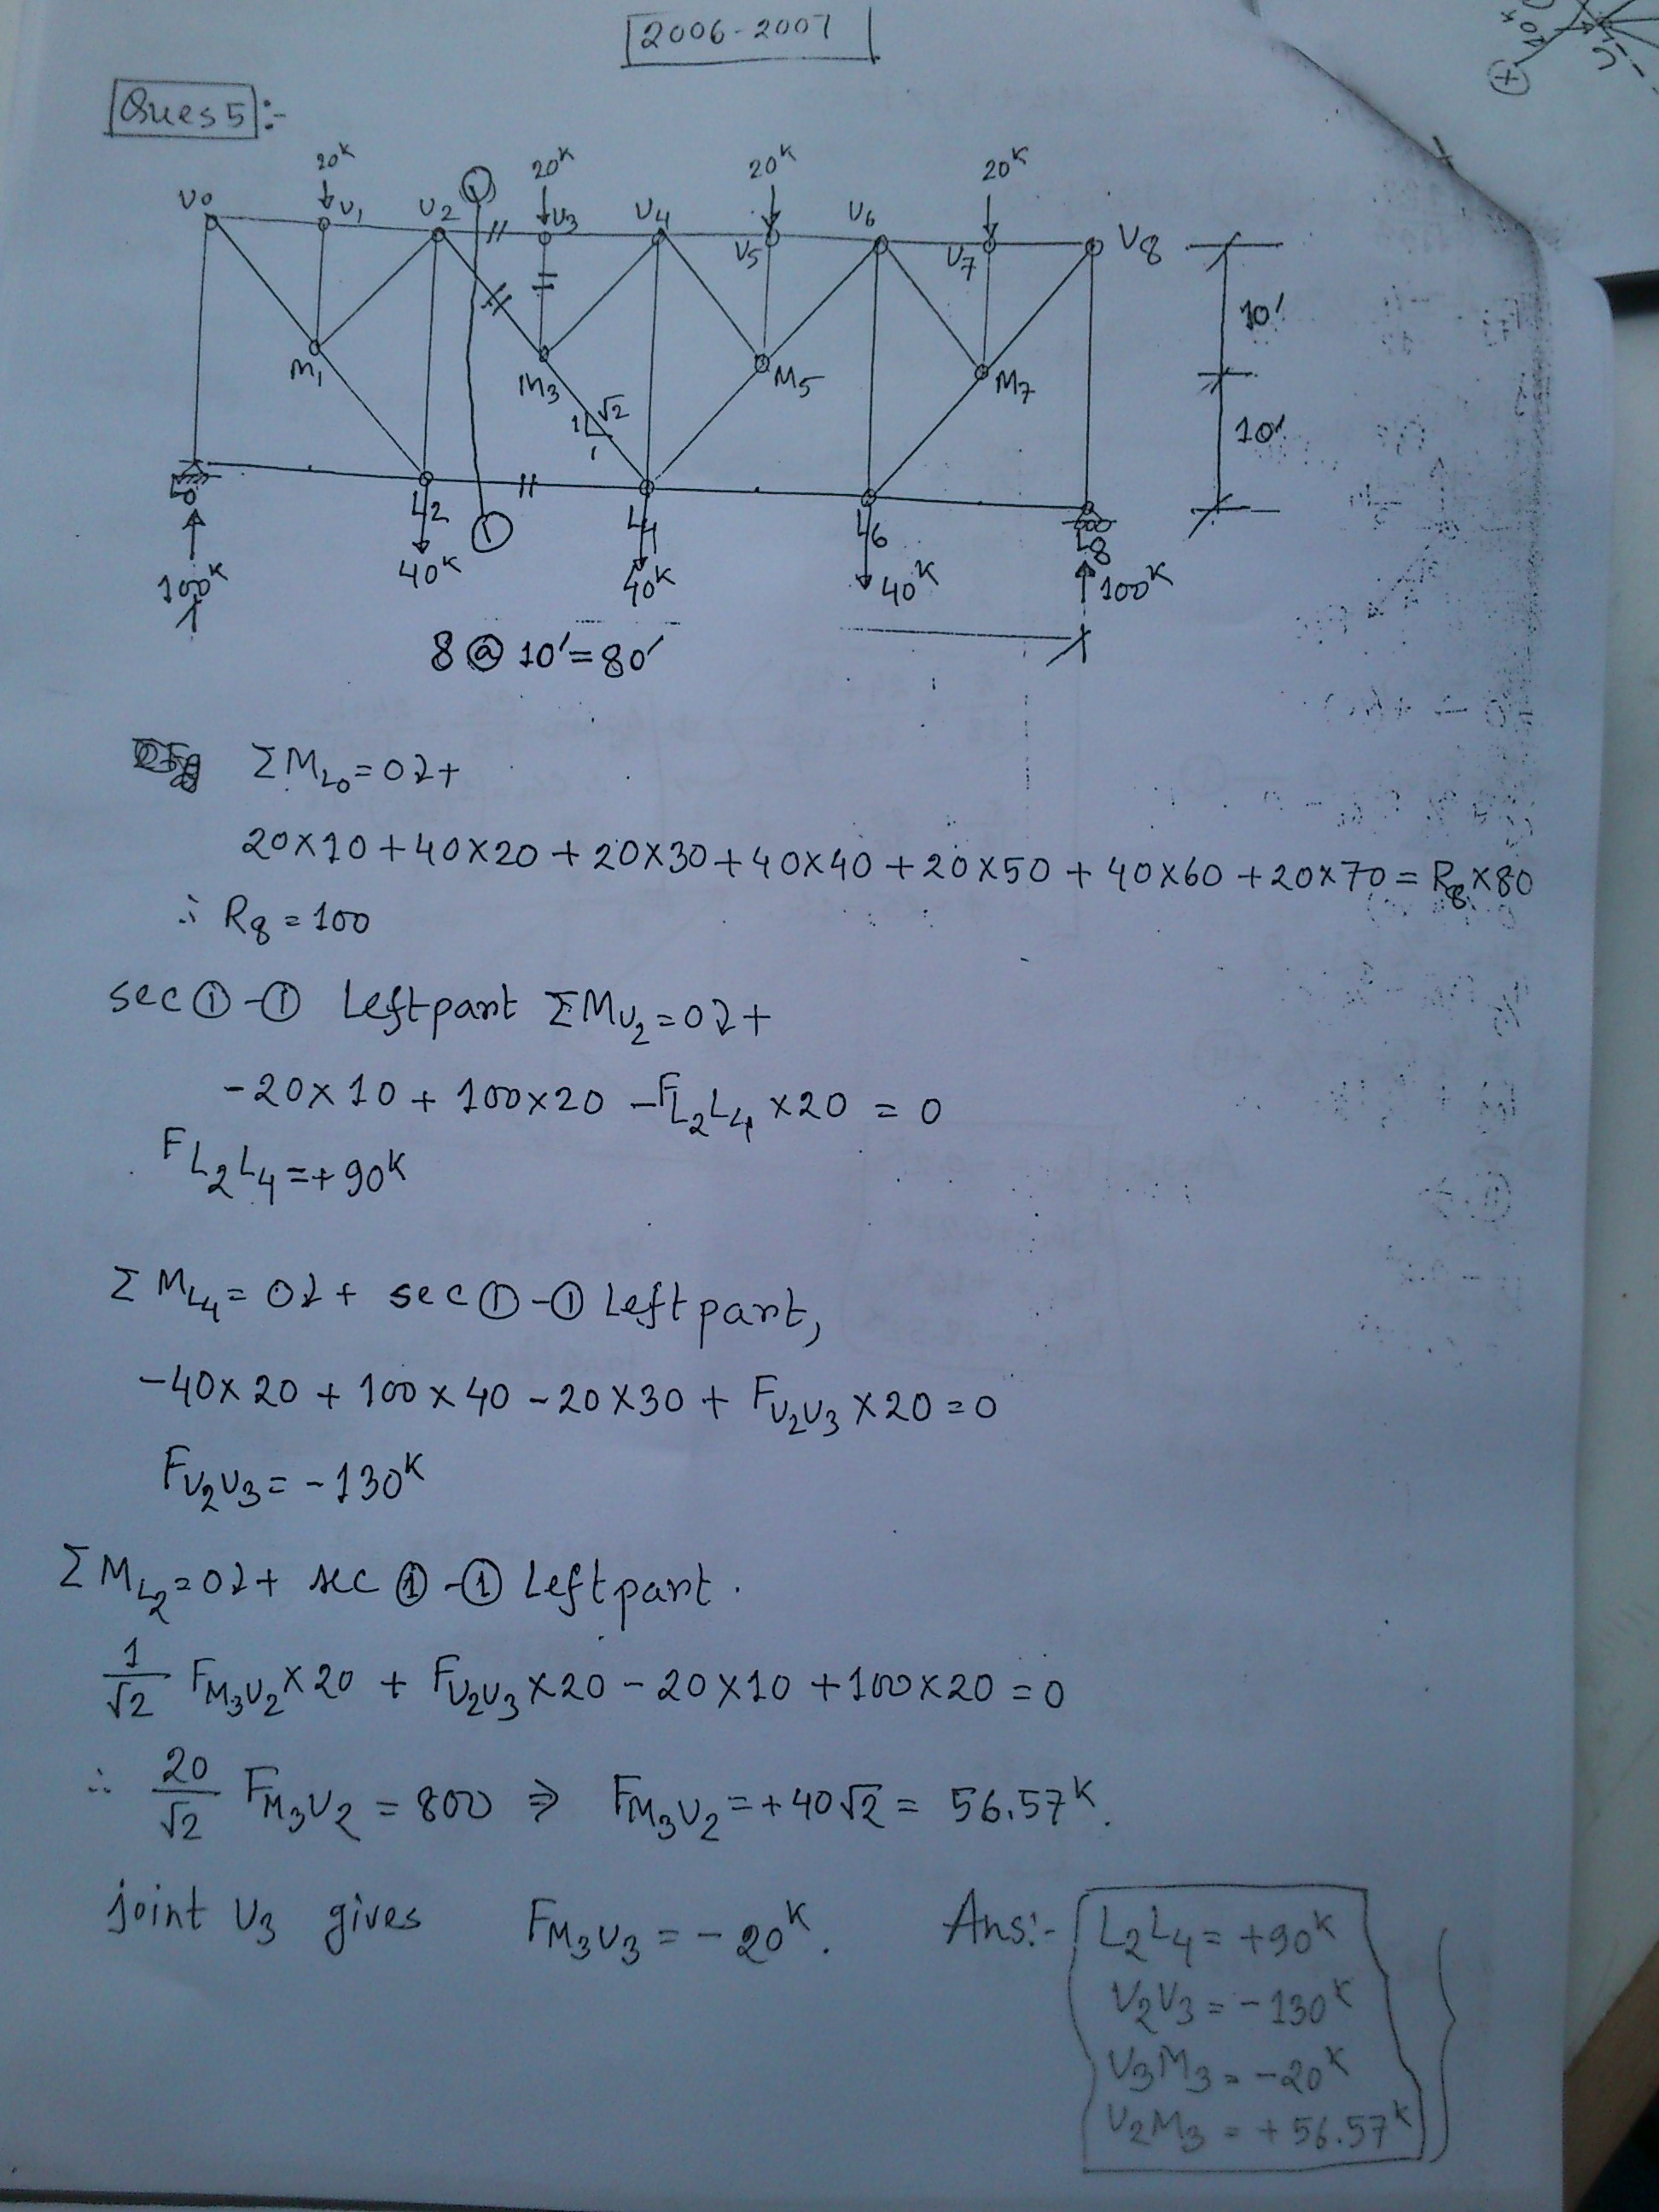 2006-2007
Ques 5:-
20K 20K 20K 20K
U0 U1 U2 1 U3 U4 U5 U6 U7 U8
10'
M1 M3 M5 M7
1 √2 1
10'
L0 L2 1 L4 L6 L8
100K 40K 40K 40K 100K
8 @ 10' = 80'
ΣM_L0 = 0 ↻+
20×10 + 40×20 + 20×30 + 40×40 + 20×50 + 40×60 + 20×70 = R8 × 80
∴ R8 = 100
sec ①-① Left part ΣM_U2 = 0 ↻+
-20×10 + 100×20 - F_L2L4 × 20 = 0
F_L2L4 = +90K
ΣM_L4 = 0 ↻+ sec ①-① Left part,
-40×20 + 100×40 - 20×30 + F_U2U3 × 20 = 0
F_U2U3 = -130K
ΣM_L2 = 0 ↻+ sec ①-① Left part.
1/√2 F_M3U2 × 20 + F_U2U3 × 20 - 20×10 + 100×20 = 0
∴ 20/√2 F_M3U2 = 800 ⇒ F_M3U2 = +40√2 = 56.57K.
joint U3 gives F_M3U3 = -20K.
Ans:- L2L4 = +90K
U2U3 = -130K
U3M3 = -20K
U2M3 = +56.57K